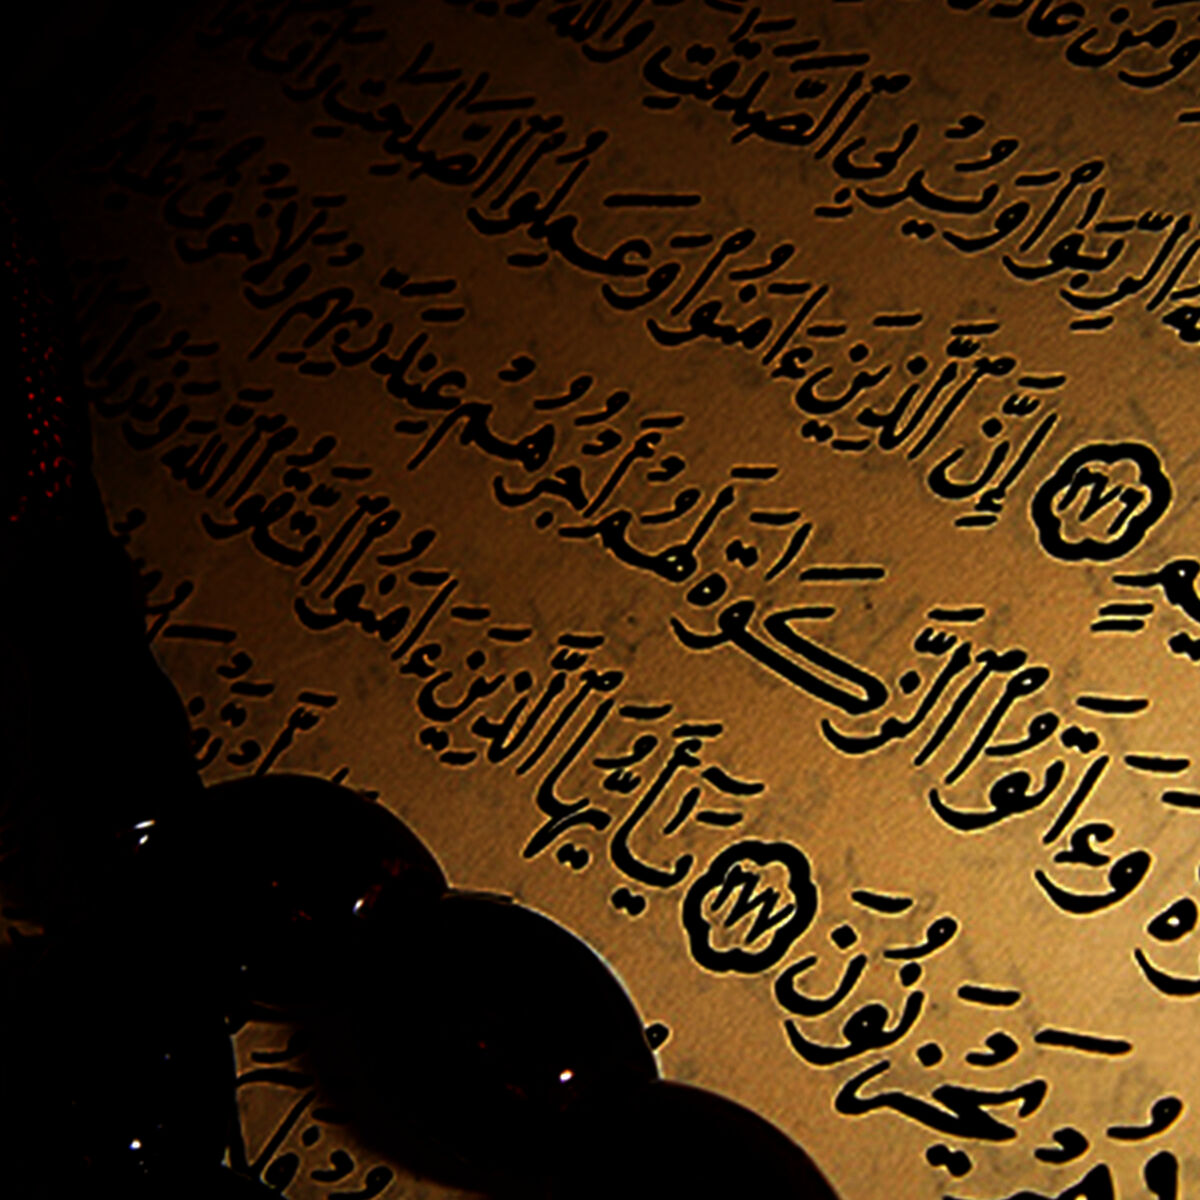 وَمَنْ عَادَ
ٱلرِّبَوٰا۟ وَيُرْبِى ٱلصَّدَقَٰتِ وَٱللَّهُ
٢٧٦ إِنَّ ٱلَّذِينَ ءَامَنُوا۟ وَعَمِلُوا۟ ٱلصَّٰلِحَٰتِ وَأَقَامُوا۟
وَءَاتَوُا۟ ٱلزَّكَوٰةَ لَهُمْ أَجْرُهُمْ عِندَ رَبِّهِمْ وَلَا خَوْفٌ عَلَيْهِمْ
يَحْزَنُونَ ٢٧٧ يَٰٓأَيُّهَا ٱلَّذِينَ ءَامَنُوا۟ ٱتَّقُوا۟ ٱللَّهَ وَذَرُوا۟